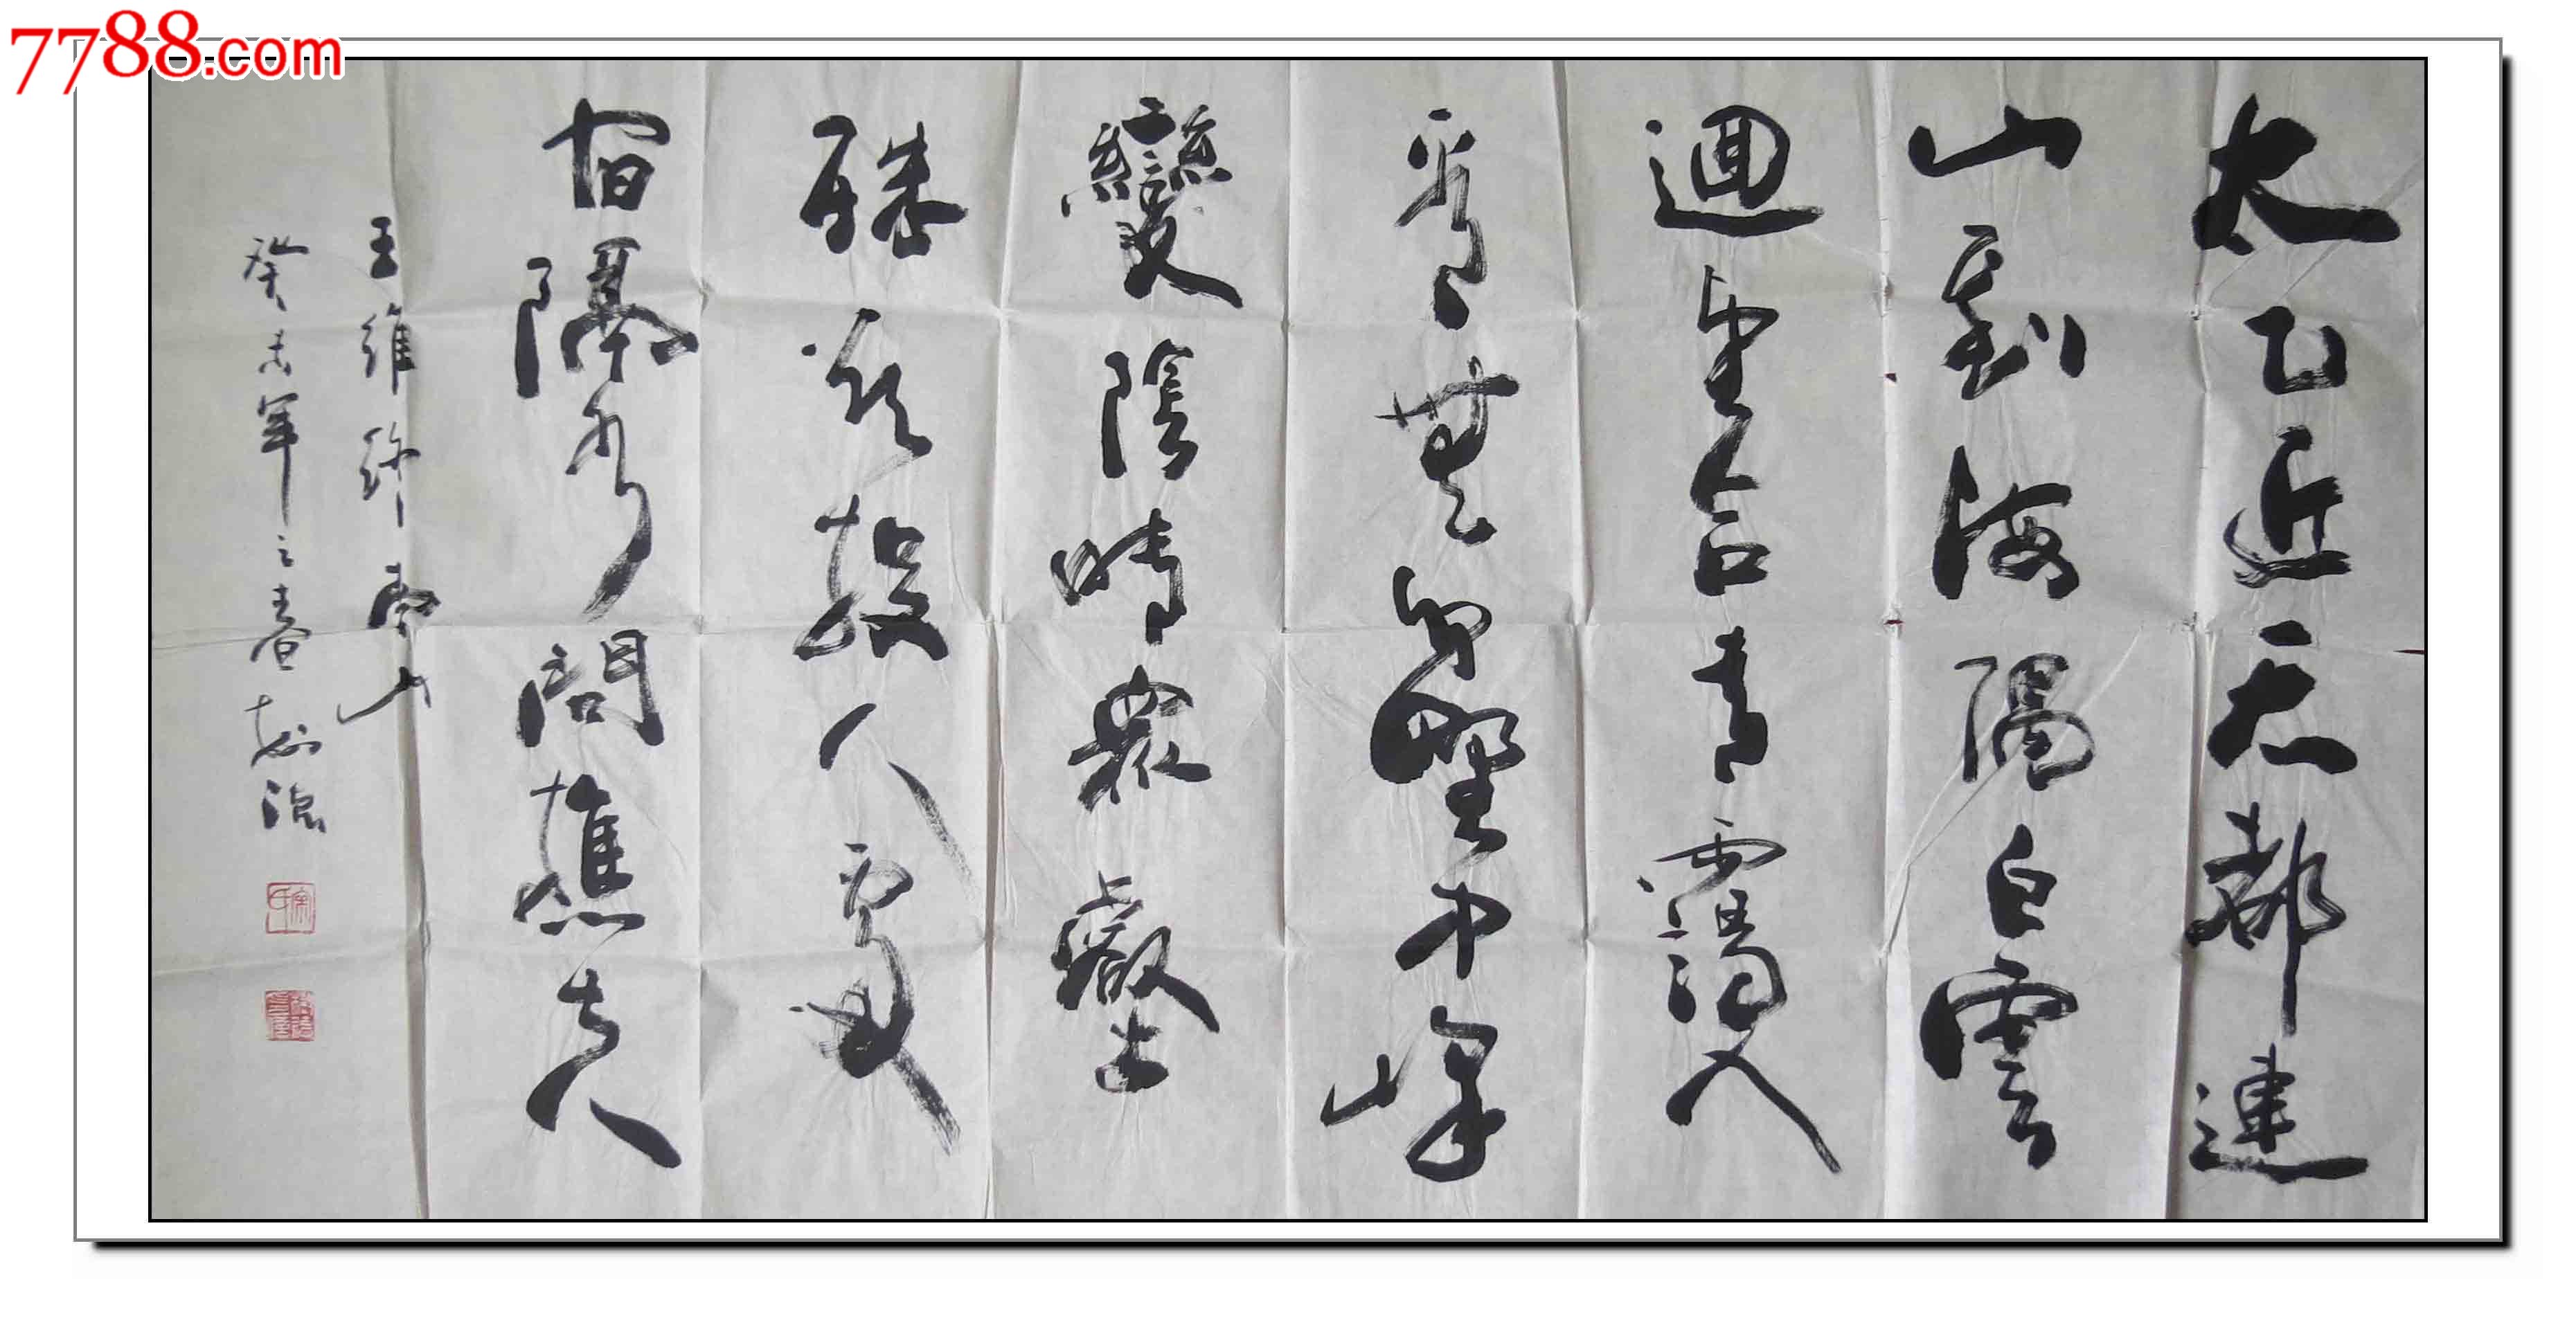 7788.com
太乙近天都連
山到海隅白雲
迴望合青靄入
看無分野中峰
變陰晴衆壑
殊欲投人處
宿隔水問樵夫
王維終南山
癸未年之春